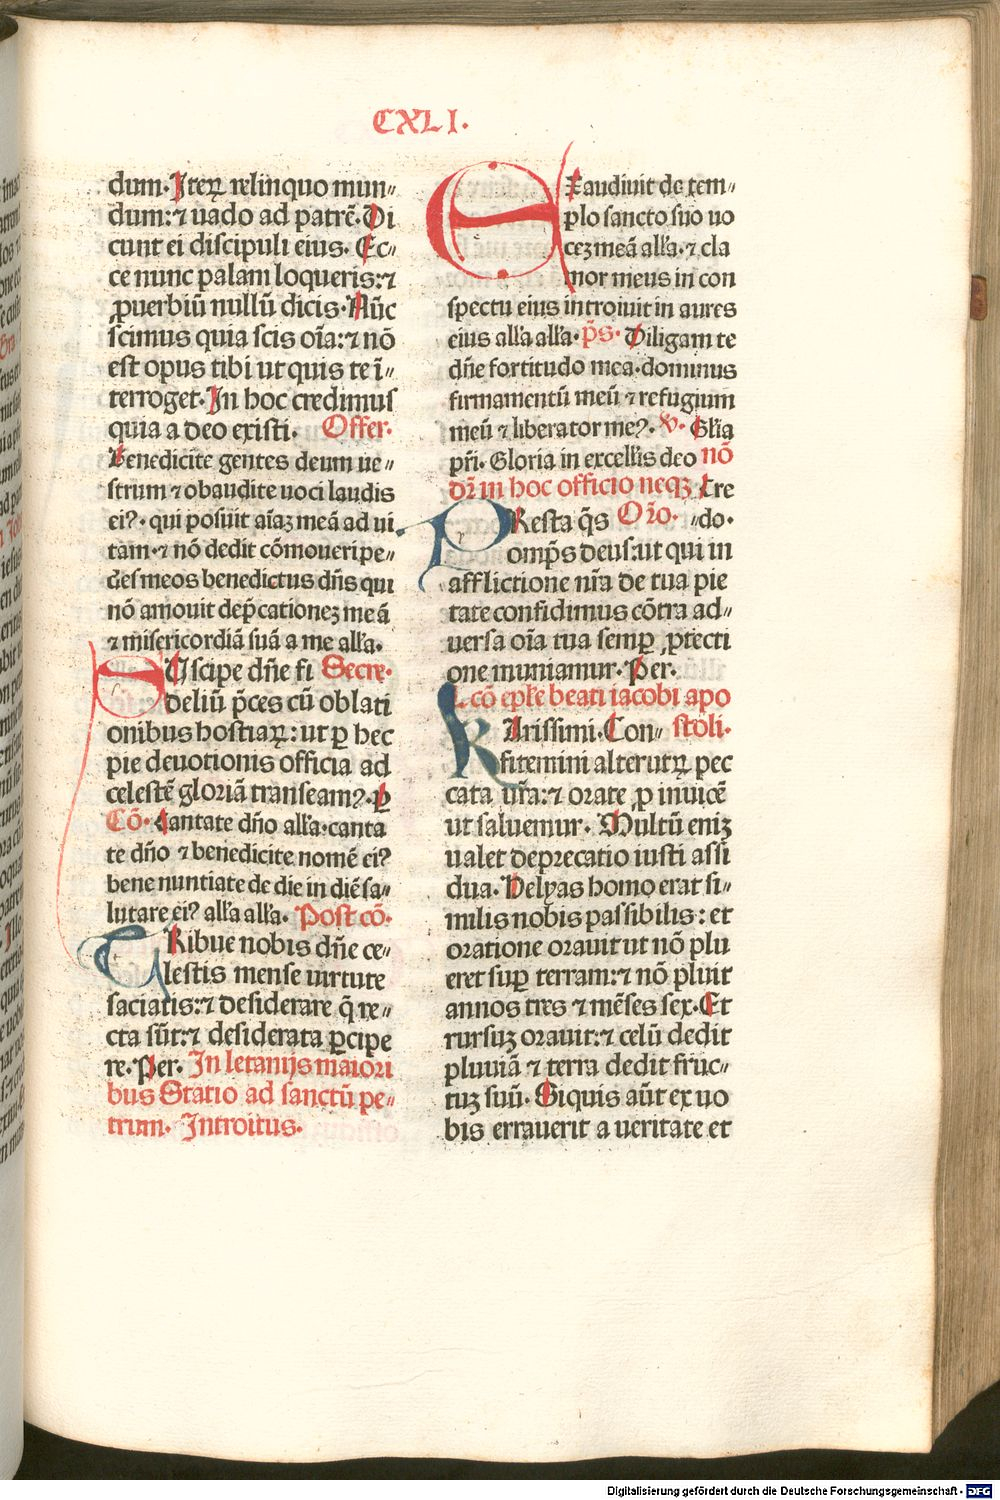 CXLI.
dum. Iteꝝ relinquo mun⸗
dum: ⁊ uado ad patrē. Di
cunt ei discipuli eius. Ec⸗
ce nunc palam loqueris: ⁊
ꝓuerbiū nullū dicis. Nūc
scimus quia scis oīa: ⁊ nō
est opus tibi ut quis te ī⸗
terroget. In hoc credimus
quia a deo existi. Offer.
Benedicite gentes deum ue⸗
strum ⁊ obaudite uoci laudis
eiꝰ. qui posuit aīaꝫ meā ad ui
tam. ⁊ nō dedit cōmoueri pe⸗
des meos benedictus dn̄s qui
nō amouit dep̄cationeꝫ meā
⁊ misericordiā suā a me all'a.
SUscipe dn̄e fi Secre.
deliū p̄ces cū oblati
onibus hostiaꝝ: ut ꝑ hec
pie deuotionis officia ad
celestē gloriā transeamꝰ. ꝑ
Cō. Cantate dn̄o all'a: canta
te dn̄o ⁊ benedicite nomē eiꝰ
bene nuntiate de die in diē sa⸗
lutare eiꝰ all'a all'a. Post cō.
TRibue nobis dn̄e ce⸗
lestis mense uirtute
saciatis: ⁊ desiderare q̄ re⸗
cta sūt: ⁊ desiderata ꝑcipe
re. Per. In letanijs maiori
bus Statio ad sanctū pe⸗
trum. Introitus.
EXaudiuit de tem⸗
plo sancto suo uo
ceꝫ meā all'a. ⁊ cla
mor meus in con
spectu eius introiuit in aures
eius all'a all'a. p̄s. Diligam te
dn̄e fortitudo mea. dominus
firmamentū meū ⁊ refugium
meū ⁊ liberator meꝰ. ꝟ. Gl'ia
pr̄i. Gloria in excelsis deo nō
dr̄ in hoc officio neqꝫ Cre
PResta q̄s Or̄o. ⸗do.
omp̄s deus: ut qui in
afflictione nr̄a de tua pie
tate confidimus cōtra ad⸗
uersa oīa tua semꝑ ꝓtecti
one muniamur. Per.
L. cō epl'e beati iacobi apo
KArissimi. Con⸗ stoli.
fitemini alterutꝝ pec
cata ur̄a: ⁊ orate ꝓ inuicē
ut saluemur. Multū eniꝫ
ualet deprecatio iusti assi
dua. Helyas homo erat si⸗
milis nobis passibilis: et
oratione orauit ut nō plu
eret suꝑ terram: ⁊ nō pluit
annos tres ⁊ mēses sex. Et
rursuꝫ orauit: ⁊ celū dedit
pluuiā ⁊ terra dedit fruc⸗
tuꝫ suū. Siquis aūt ex uo
bis errauerit a ueritate et
Digitalisierung gefördert durch die Deutsche Forschungsgemeinschaft - DFG